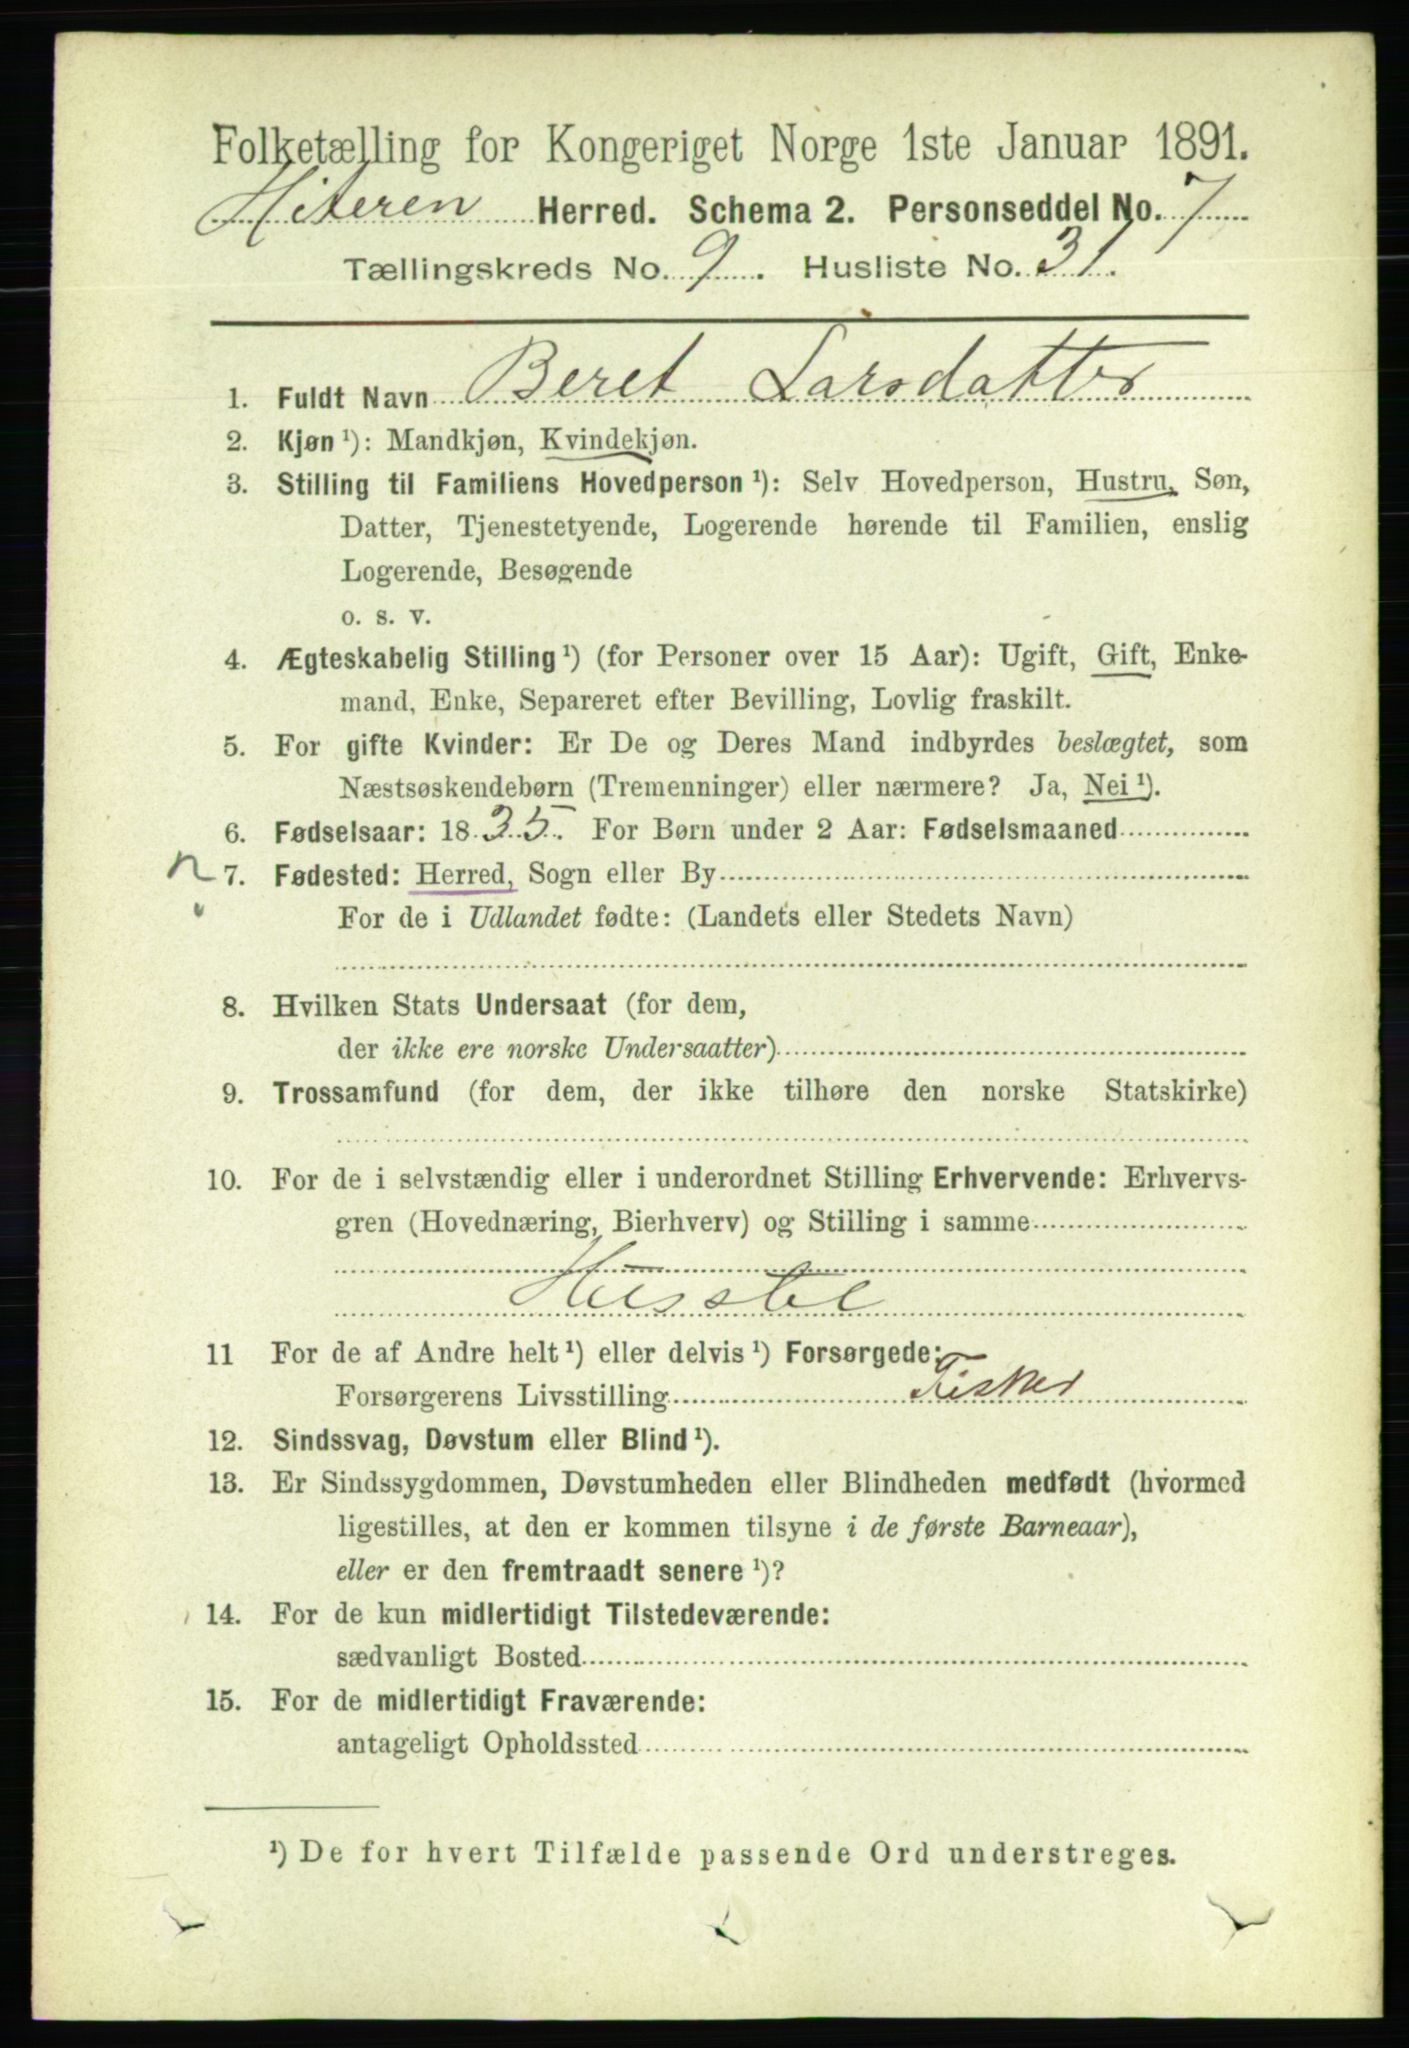 Folketælling for Kongeriget Norge 1ste Januar 1891.
Hiteren Herred. Schema 2. Personseddel No. 7
Tællingskreds No. 9. Husliste No. 31.
1. Fuldt Navn Beret Larsdatter
2. Kjøn ¹): Mandkjøn, Kvindekjøn.
3. Stilling til Familiens Hovedperson ¹): Selv Hovedperson, Hustru, Søn,
Datter, Tjenestetyende, Logerende hørende til Familien, enslig
Logerende, Besøgende
o. s. v.
4. Ægteskabelig Stilling ¹) (for Personer over 15 Aar): Ugift, Gift, Enke-
mand, Enke, Separeret efter Bevilling, Lovlig fraskilt.
5. For gifte Kvinder: Er De og Deres Mand indbyrdes beslægtet, som
Næstsøskendebørn (Tremenninger) eller nærmere? Ja, Nei ¹).
6. Fødselsaar: 1835. For Børn under 2 Aar: Fødselsmaaned
n 7. Fødested: Herred, Sogn eller By
For de i Udlandet fødte: (Landets eller Stedets Navn)
8. Hvilken Stats Undersaat (for dem,
der ikke ere norske Undersaatter)
9. Trossamfund (for dem, der ikke tilhøre den norske Statskirke)
10. For de i selvstændig eller i underordnet Stilling Erhvervende: Erhvervs-
gren (Hovednæring, Bierhverv) og Stilling i samme
Husstel
11 For de af Andre helt ¹) eller delvis ¹) Forsørgede:
Forsørgerens Livsstilling Fisker
12. Sindssvag, Døvstum eller Blind ¹).
13. Er Sindssygdommen, Døvstumheden eller Blindheden medfødt (hvormed
ligestilles, at den er kommen tilsyne i de første Barneaar),
eller er den fremtraadt senere ¹)?
14. For de kun midlertidigt Tilstedeværende:
sædvanligt Bosted
15. For de midlertidigt Fraværende:
antageligt Opholdssted
¹) De for hvert Tilfælde passende Ord understreges.